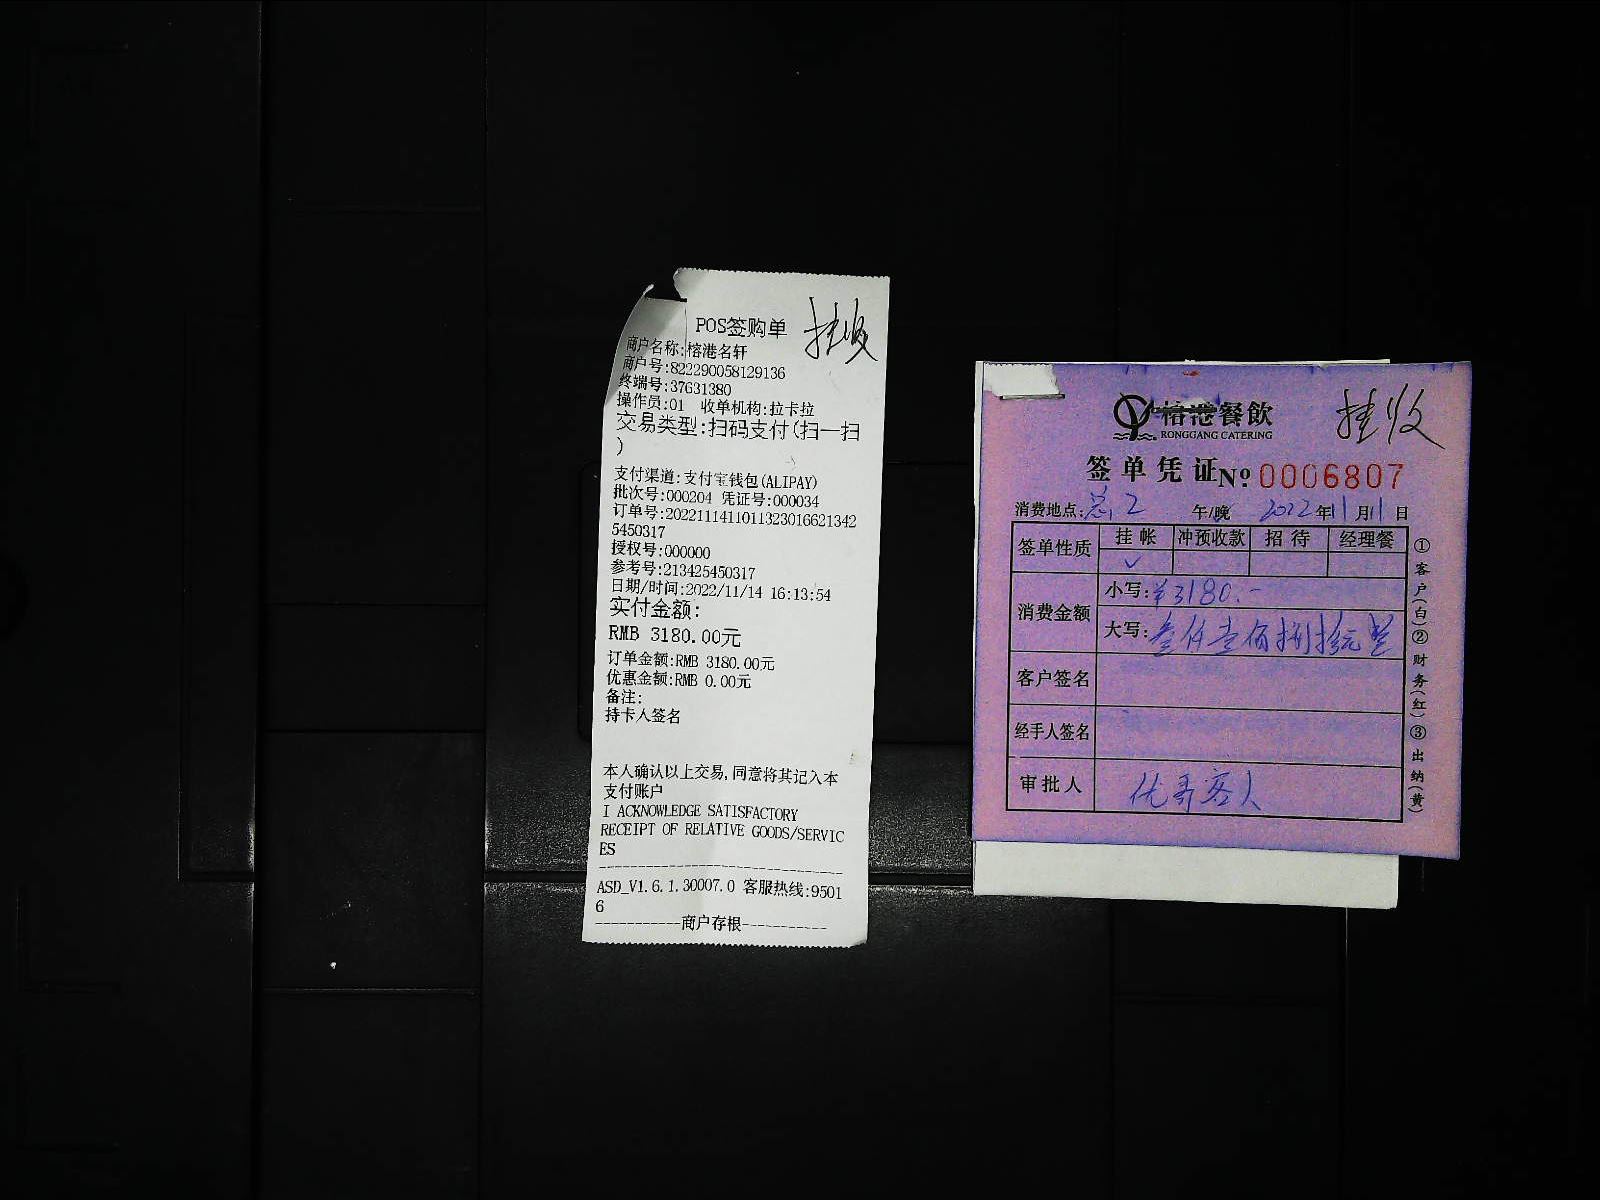 POS签购单
挂收
商户名称:榕港名轩
商户号:822290058129136
终端号:37631380
操作员:01 收单机构:拉卡拉
交易类型:扫码支付(扫一扫
)
支付渠道:支付宝钱包(ALIPAY)
批次号:000204 凭证号:000034
订单号:2022111411011323016621342
5450317
授权号:000000
参考号:213425450317
日期/时间:2022/11/14 16:13:54
实付金额:
RMB 3180.00元
订单金额:RMB 3180.00元
优惠金额:RMB 0.00元
备注:
持卡人签名
本人确认以上交易,同意将其记入本
支付账户
I ACKNOWLEDGE SATISFACTORY
RECEIPT OF RELATIVE GOODS/SERVIC
ES
ASD_V1.6.1.30007.0 客服热线:9501
6
------------商户存根------------
榕港餐飲
RONGGANG CATERING
挂收
签单凭证№ 0006807
消费地点: 总2 午/晚 2022年11月1日
签单性质 挂帐 冲预收款 招待 经理餐
✓
消费金额
小写:¥3180.-
大写:叁仟壹佰捌拾元整
客户签名
经手人签名
审批人 优哥客人
①客户(白)②财务(红)③出纳(黄)